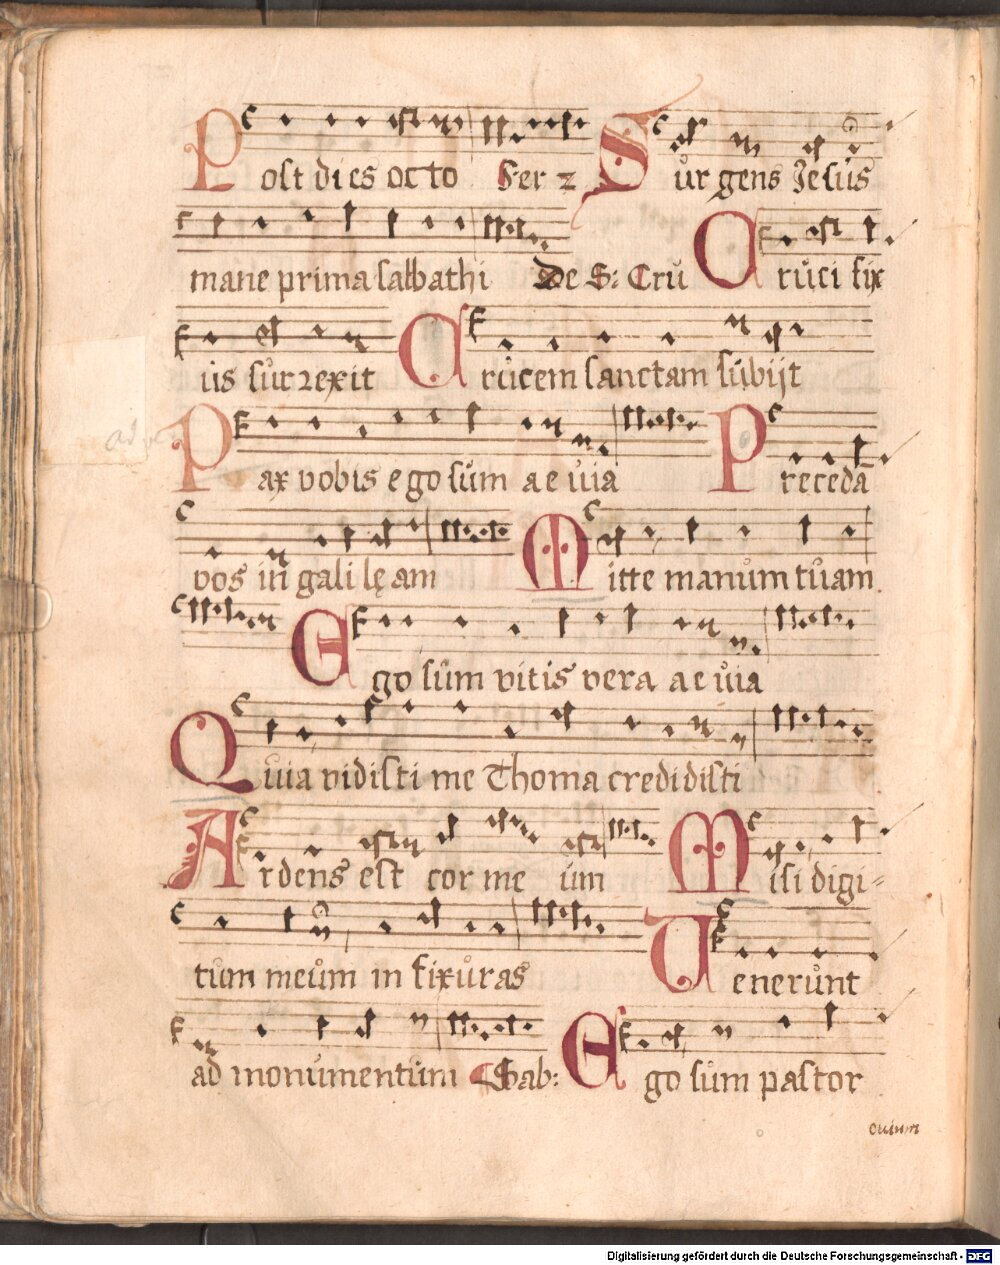 Post dies octo Fer 2 Surgens Jesus
mane prima sabbathi De S: Cru Cruci fix
us surrexit Crucem sanctam subijt
Pax vobis ego sum aevia Precedā
vos in galilęam Mitte manum tuam
Ego sum vitis vera aevia
Quia vidisti me Thoma credidisti
Ardens est cor meum Misi digi=
tum meum in fixuras Venerunt
ad monumentum Sab: Ego sum pastor
ouium
Digitalisierung gefördert durch die Deutsche Forschungsgemeinschaft - DFG